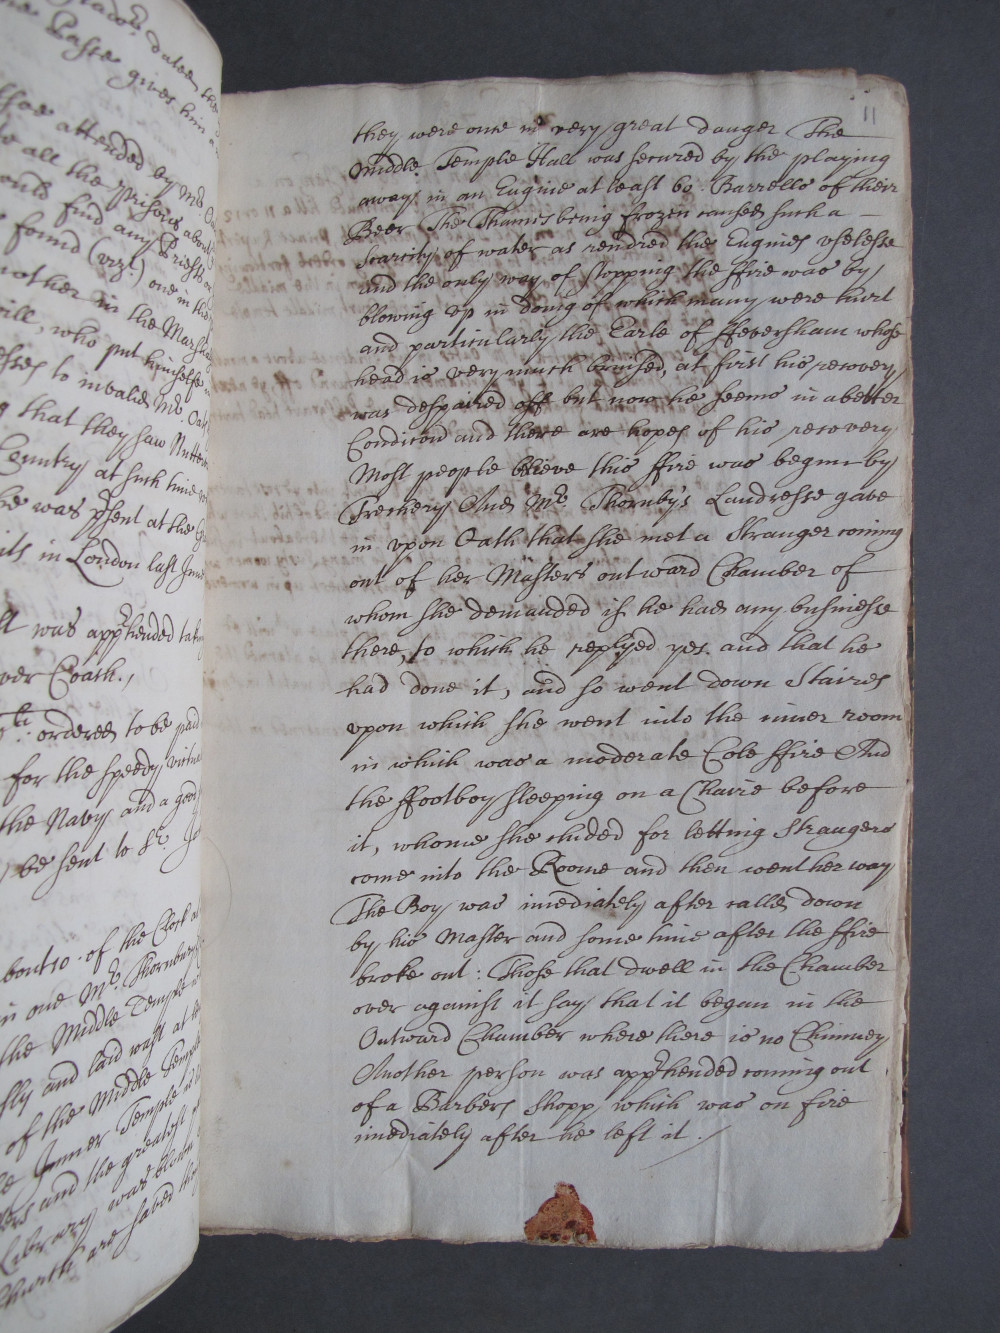 adors dated the
the Paste gives him a
attended by Mr. O
all the Prisons about
find any Priests or
found (vizt.) one in the
nother in the Marshal
ill, who put himselfe
sses to invalid Mr. Oat
g that they saw
Countrey at such time
he was p̄sent at the
its in London last June
lt was app̄hended taking
over Coach.,
ordered to be paid
for the speedy virtual
the Navy and a good
be sent to Sr. Jo
bout 10 . of the Clock at
in one Mr. Thornburys
the Middle Temple
sly and laid wast at the
of the Middle Temple
e Inner Temple
rs and the greatest
Library was blown
Church are saved the
11
they were once in very great danger The
Middle Temple Hall was secured by the playing
away in an Engine at least 60 . Barrells of their
Beer The Thames being frozen caused such a –
scarcity of water as rendred the Engines vselesse
and the only way of stopping the ffire was by
blowing vp in doing of which many were hurt
and particularly the Earle of ffeversham whose
head is very much bruised, at first his recovery
was despaired off but now he seems in a better
Condicion and there are hopes of his recovery
Most people believe this ffire was begun by
Trechery And Mr. Thornby's Landresse gave
in vpon Oath that she met a Stranger coming
out of her Masters outward Chamber of
whom she demanded if he had any businesse
there, to which he replyed yes. and that he
had done it, and so went down Staires
vpon which she went into the inner room
in which was a moderate Cole ffire And
the ffootboy sleeping on a Chaire before
it, whome she chided for letting Strangers
come into the Roome and then went her way
The Boy was imediately after called down
by his Master and some time after the ffire
broke out : Those that dwell in the Chamber
over against it say that it began in the
Outward Chamber where there is no Chimney
Another person was app̄hended coming out
of a Barbers Shopp which was on fire
imediately after he left it . /